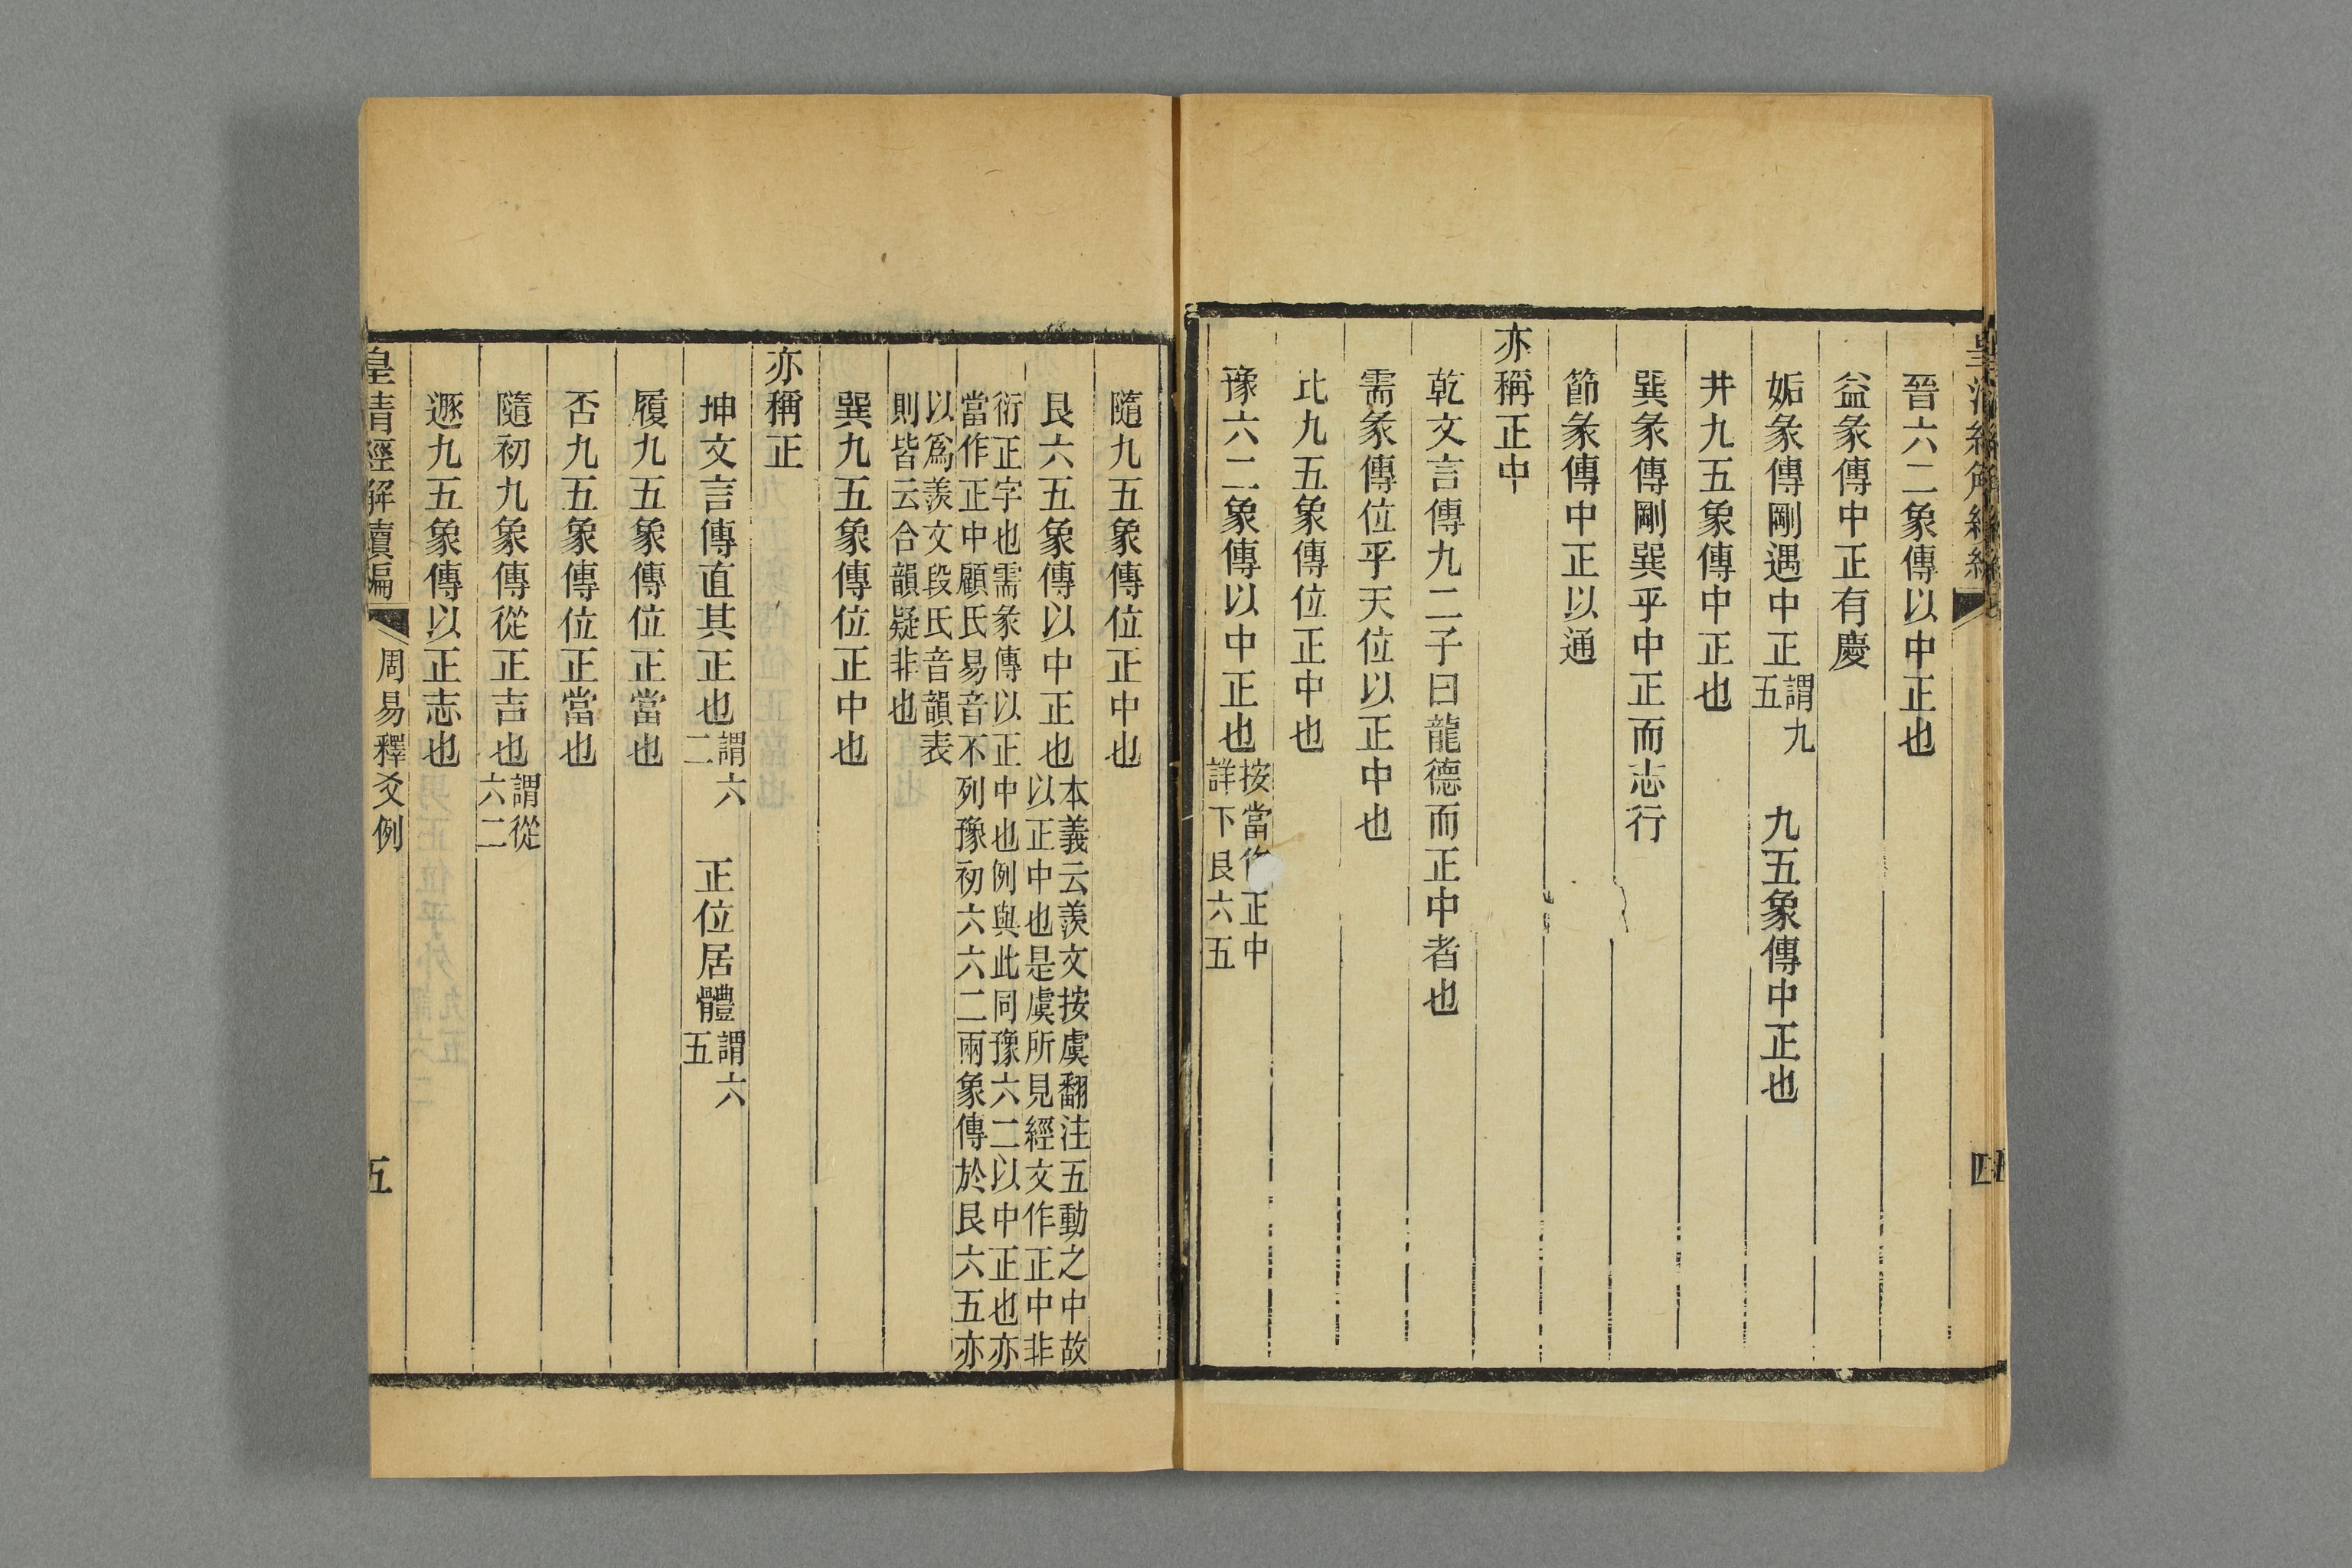 晉六二象傳以中正也
益彖傳中正有慶
姤彖傳剛遇中正謂九五　九五象傳中正也
井九五象傳中正也
巽彖傳剛巽乎中正而志行
節彖傳中正以通
亦稱正中
乾文言傳九二子曰龍德而正中者也
需彖傳位乎天位以正中也
比九五象傳位正中也
豫六二象傳以中正也按當作正中詳下艮六五
隨九五象傳位正中也
艮六五象傳以中正也本義云羨文按虞翻注五動之中故以正中也是虞所見經文作正中非
衍正字也需彖傳以正中也例與此同豫六二以中正也亦
當作正中顧氏易音不列豫初六六二兩象傳於艮六五亦
以爲羨文段氏音韻表
則皆云合韻疑非也
巽九五象傳位正中也
亦稱正
坤文言傳直其正也謂六二　正位居體謂六五
履九五象傳位正當也
否九五象傳位正當也
隨初九象傳從正吉也謂從六二
遯九五象傳以正志也
皇清經解續編　周易釋爻例　五